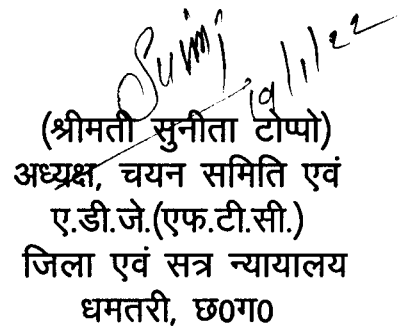 19/1/22
(श्रीमती सुनीता टोप्पो)
अध्यक्ष, चयन समिति एवं
ए.डी.जे.(एफ.टी.सी.)
जिला एवं सत्र न्यायालय
धमतरी, छ0ग0